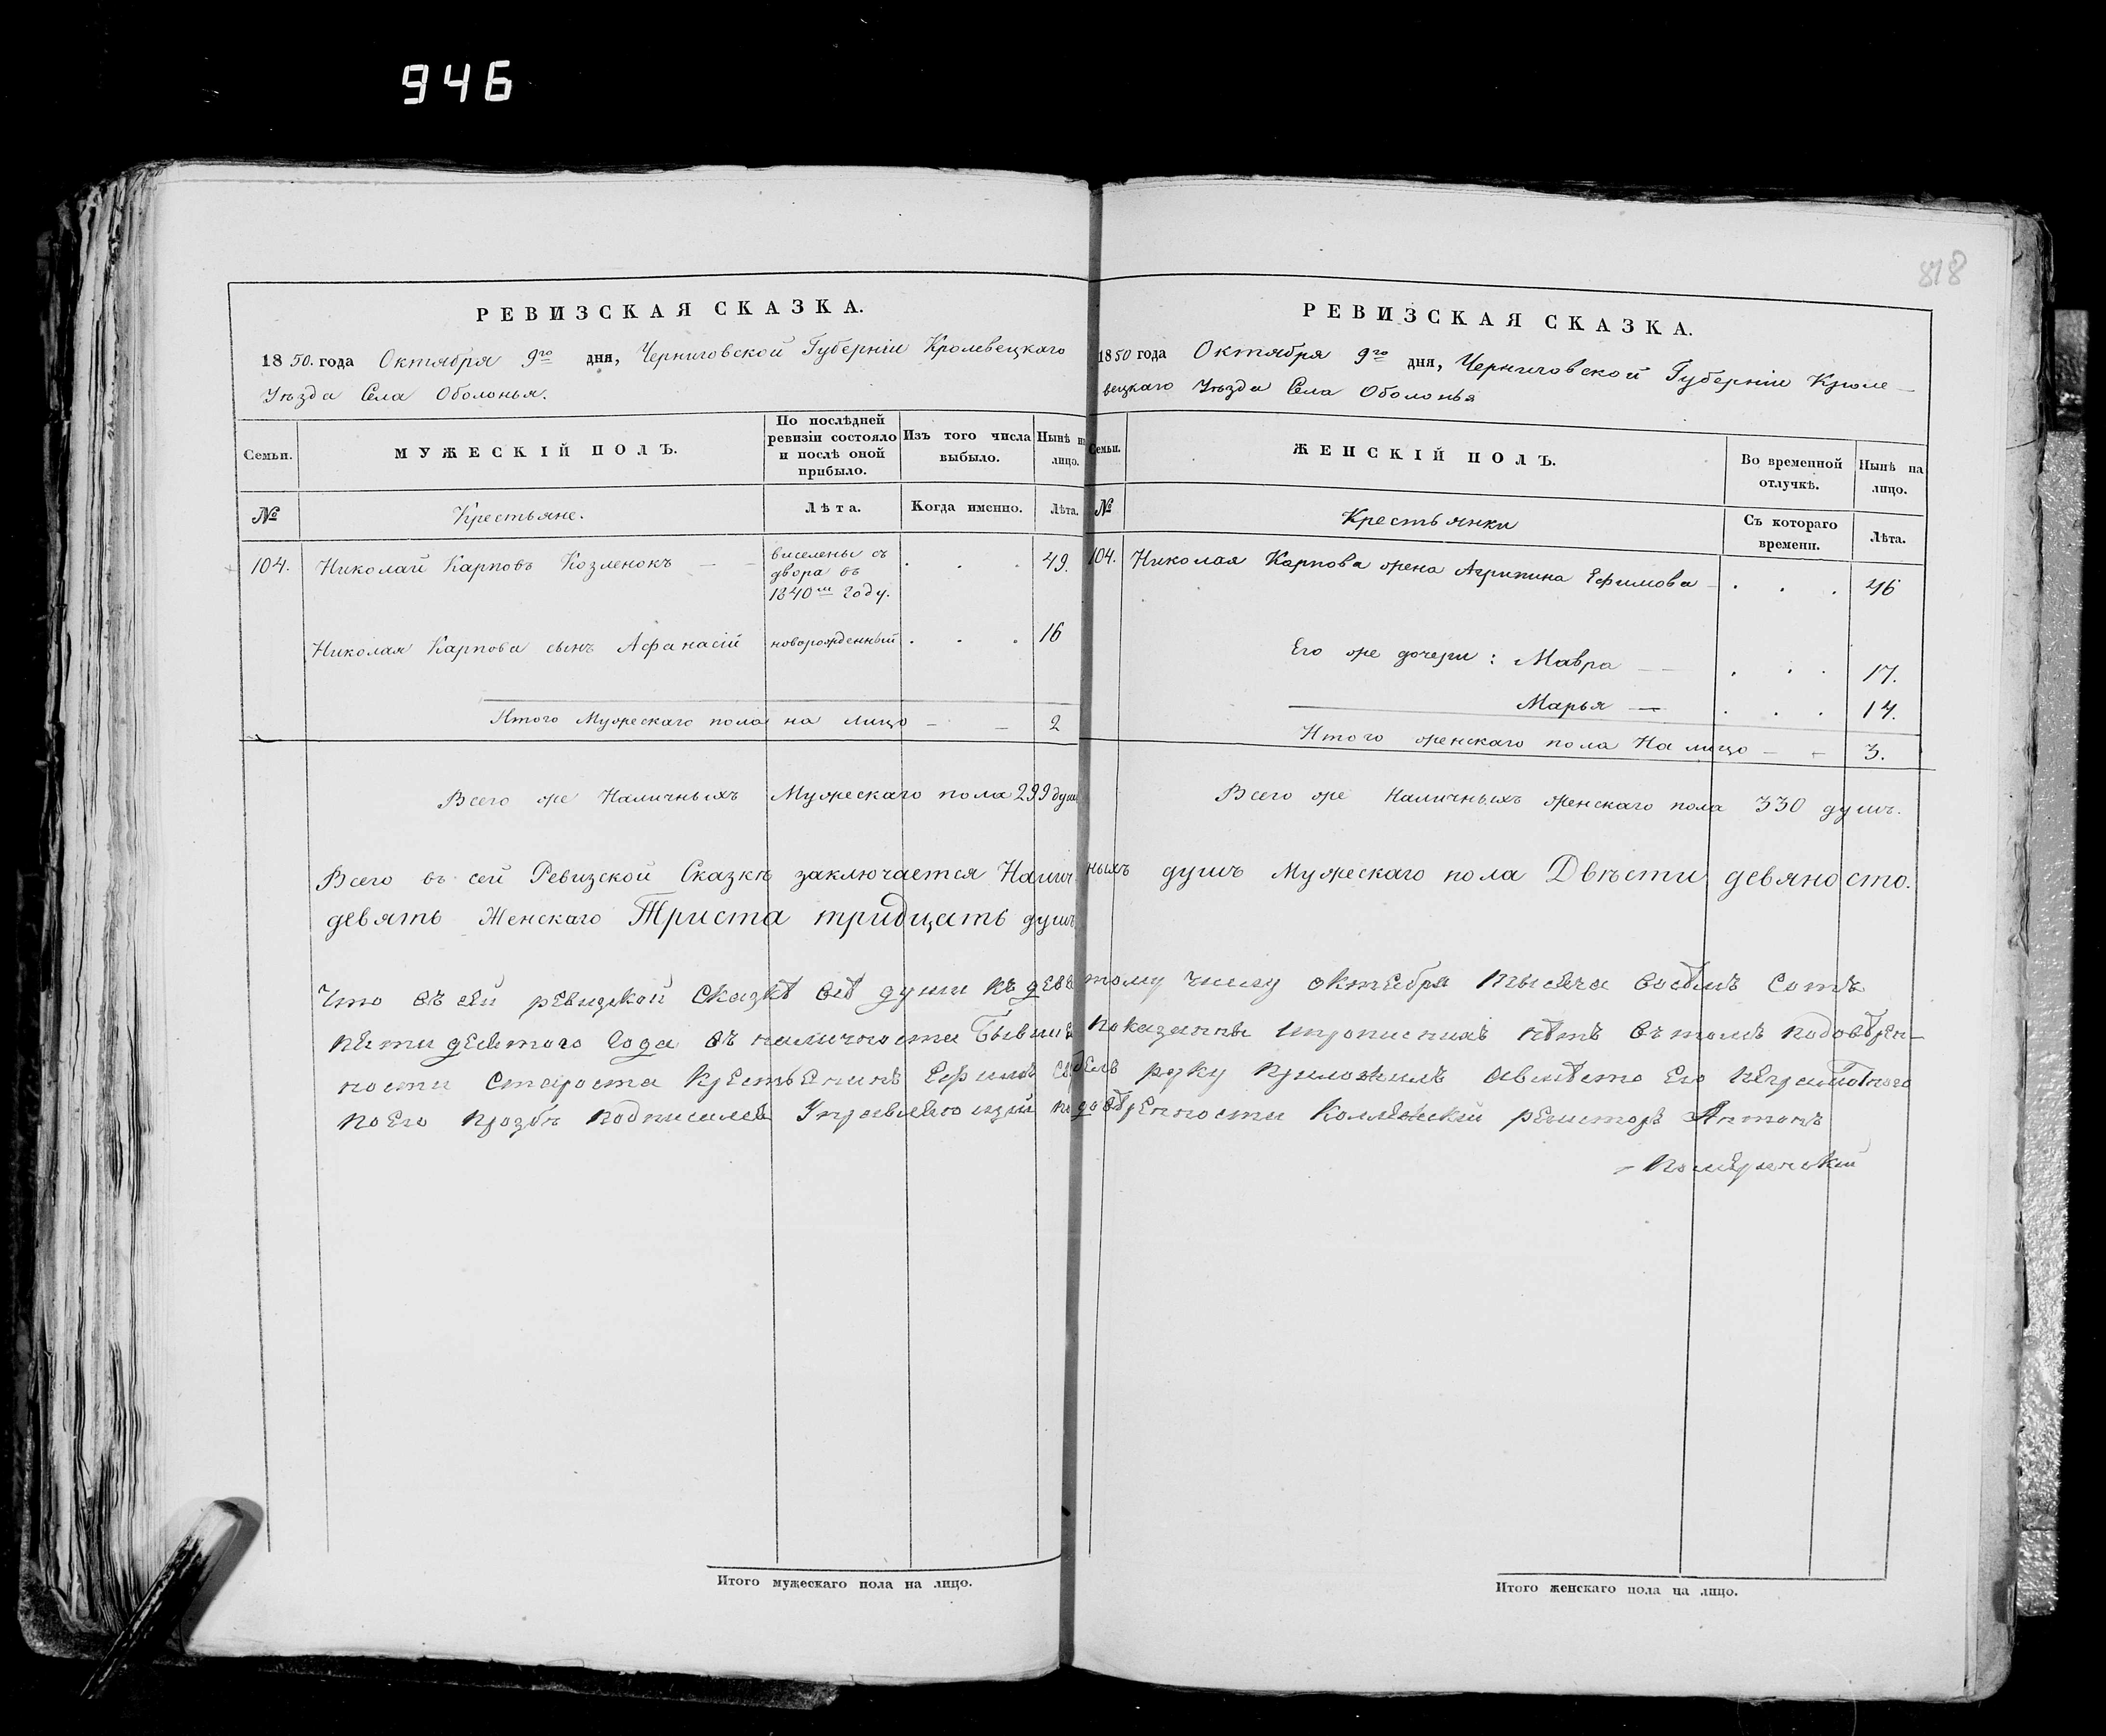 946
818
РЕВИЗСКАЯ СКАЗКА.
1850. года Октября 9го дня, Черниговской Губерніи Кролевецкаго
Уѣзда Села Оболонья.
Семьи.
МУЖЕСКІЙ ПОЛЪ.
По послѣдней
ревизіи состояло
и послѣ оной
прибыло.
Изъ того числа
выбыло.
Нынѣ на
лицо.
№
Крестьяне.
Лѣта.
Когда именно.
Лѣта.
104. Николай Карповъ Козленокъ — — 49.
виселены съ
двора въ
1840м году.
Николая Карпова сынъ Афанасій новорожденный . . . 16
Итого Мужескаго пола на лицо — — 2
Всего же Наличныхъ Мужескаго пола 299 душ
РЕВИЗСКАЯ СКАЗКА.
1850 года Октября 9го дня, Черниговской Губерніи Кроле—
вецкаго Уѣзда Села Оболонья
Семьи.
ЖЕНСКІЙ ПОЛЪ.
Во временной
отлучкѣ.
Нынѣ на
лицо.
№
Крестьянки
Съ котораго
времени.
Лѣта.
104. Николая Карпова жена Агрипина Ефимова — . . . 46
Его же дочери: Мавра — — . . . 17.
Марья — . . . 14.
Итого женскаго пола На лицо — — 3.
Всего же Наличныхъ женскаго пола 330 душъ.
Всего въ сей Ревизской Сказкѣ заключается Наличныхъ душъ Мужескаго пола Двѣсти девяносто.
девять Женскаго Триста тридцать душъ
Что въ сей ревизской сказкѣ всѣ души къ девятому числу октебря тысяча восѣмъ сотъ
пяти десятого года въ наличности бывшіе показанны ипрописнихъ нѣтъ въ томъ подовѣрен—
ности староста крестьенинъ Ефимъ руку приложилъ авмѣсто его неграмотного
поего прозбѣ подписался Управляющий подовѣренности Колѣжский регисторъ Антонъ